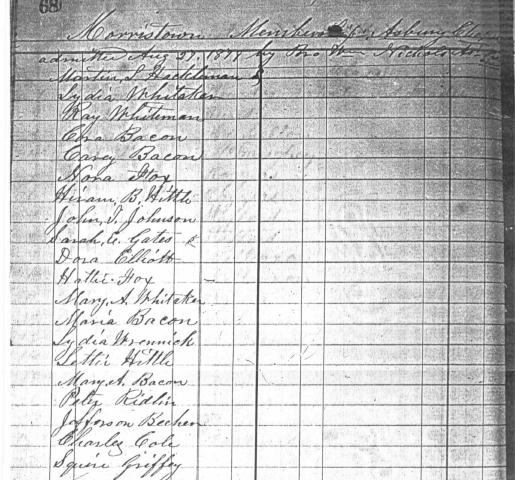 68
Morristown Members of Asbury Chapel
admitted Aug 27, 1877 by Bro Wm Nichols
Martin S Heckleman
Lydia Whitaker
Ray Whiteman
Cora Bacon
Carey Bacon
Nora Fox
Hiram B. Hittle
John T. Johnson
Sarah E. Gates
Dora Elliott
Hattie Fox
Mary A. Whitaker
Maria Bacon
Lydia Wrennick
Lettie Hittle
Mary A. Bacon
Peter Ridlin
Jefferson Becher
Charles Cole
Squire Griffey